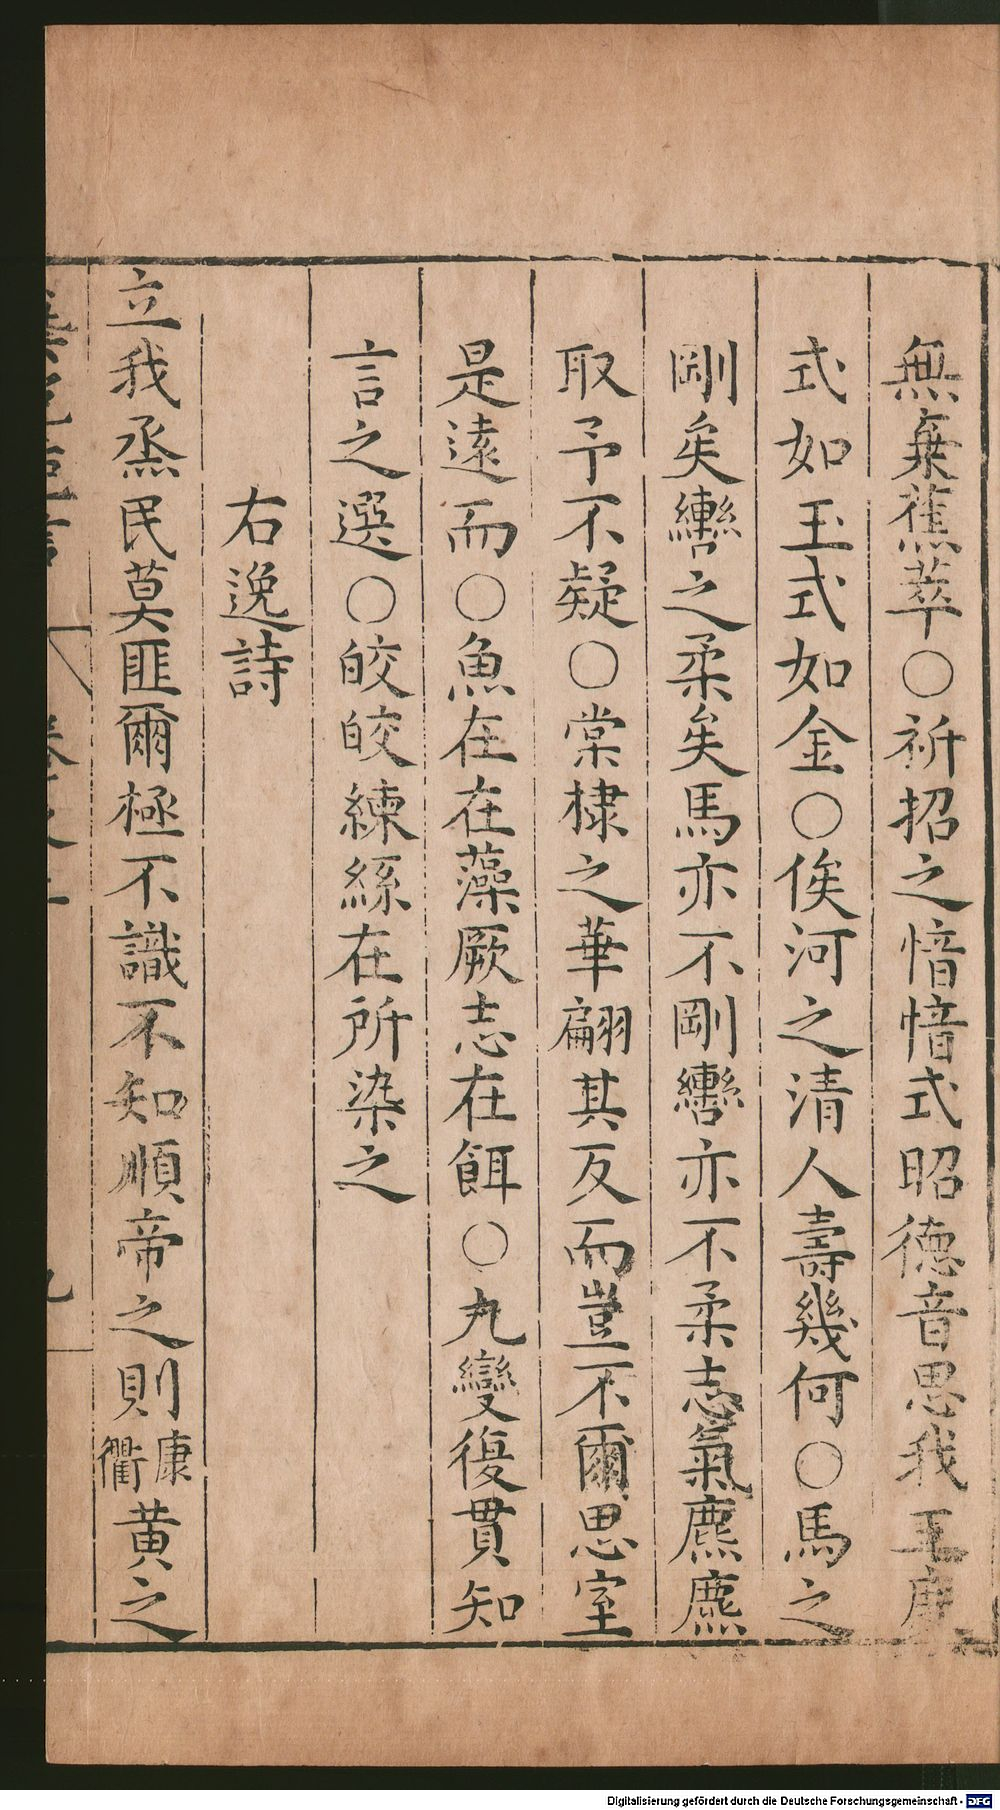 無棄蕉萃○祈招之愔愔式昭德音思我王度
式如玉式如金○俟河之清人壽幾何○馬之
剛矣轡之柔矣馬亦不剛轡亦不柔志氣麃麃
取予不疑○棠棣之華翩其反而豈不爾思室
是遠而○魚在在藻厥志在餌○九變復貫知
言之選○皎皎練絲在所染之
右逸詩
立我烝民莫匪爾極不識不知順帝之則康衢黃之
Digitalisierung gefördert durch die Deutsche Forschungsgemeinschaft - DFG